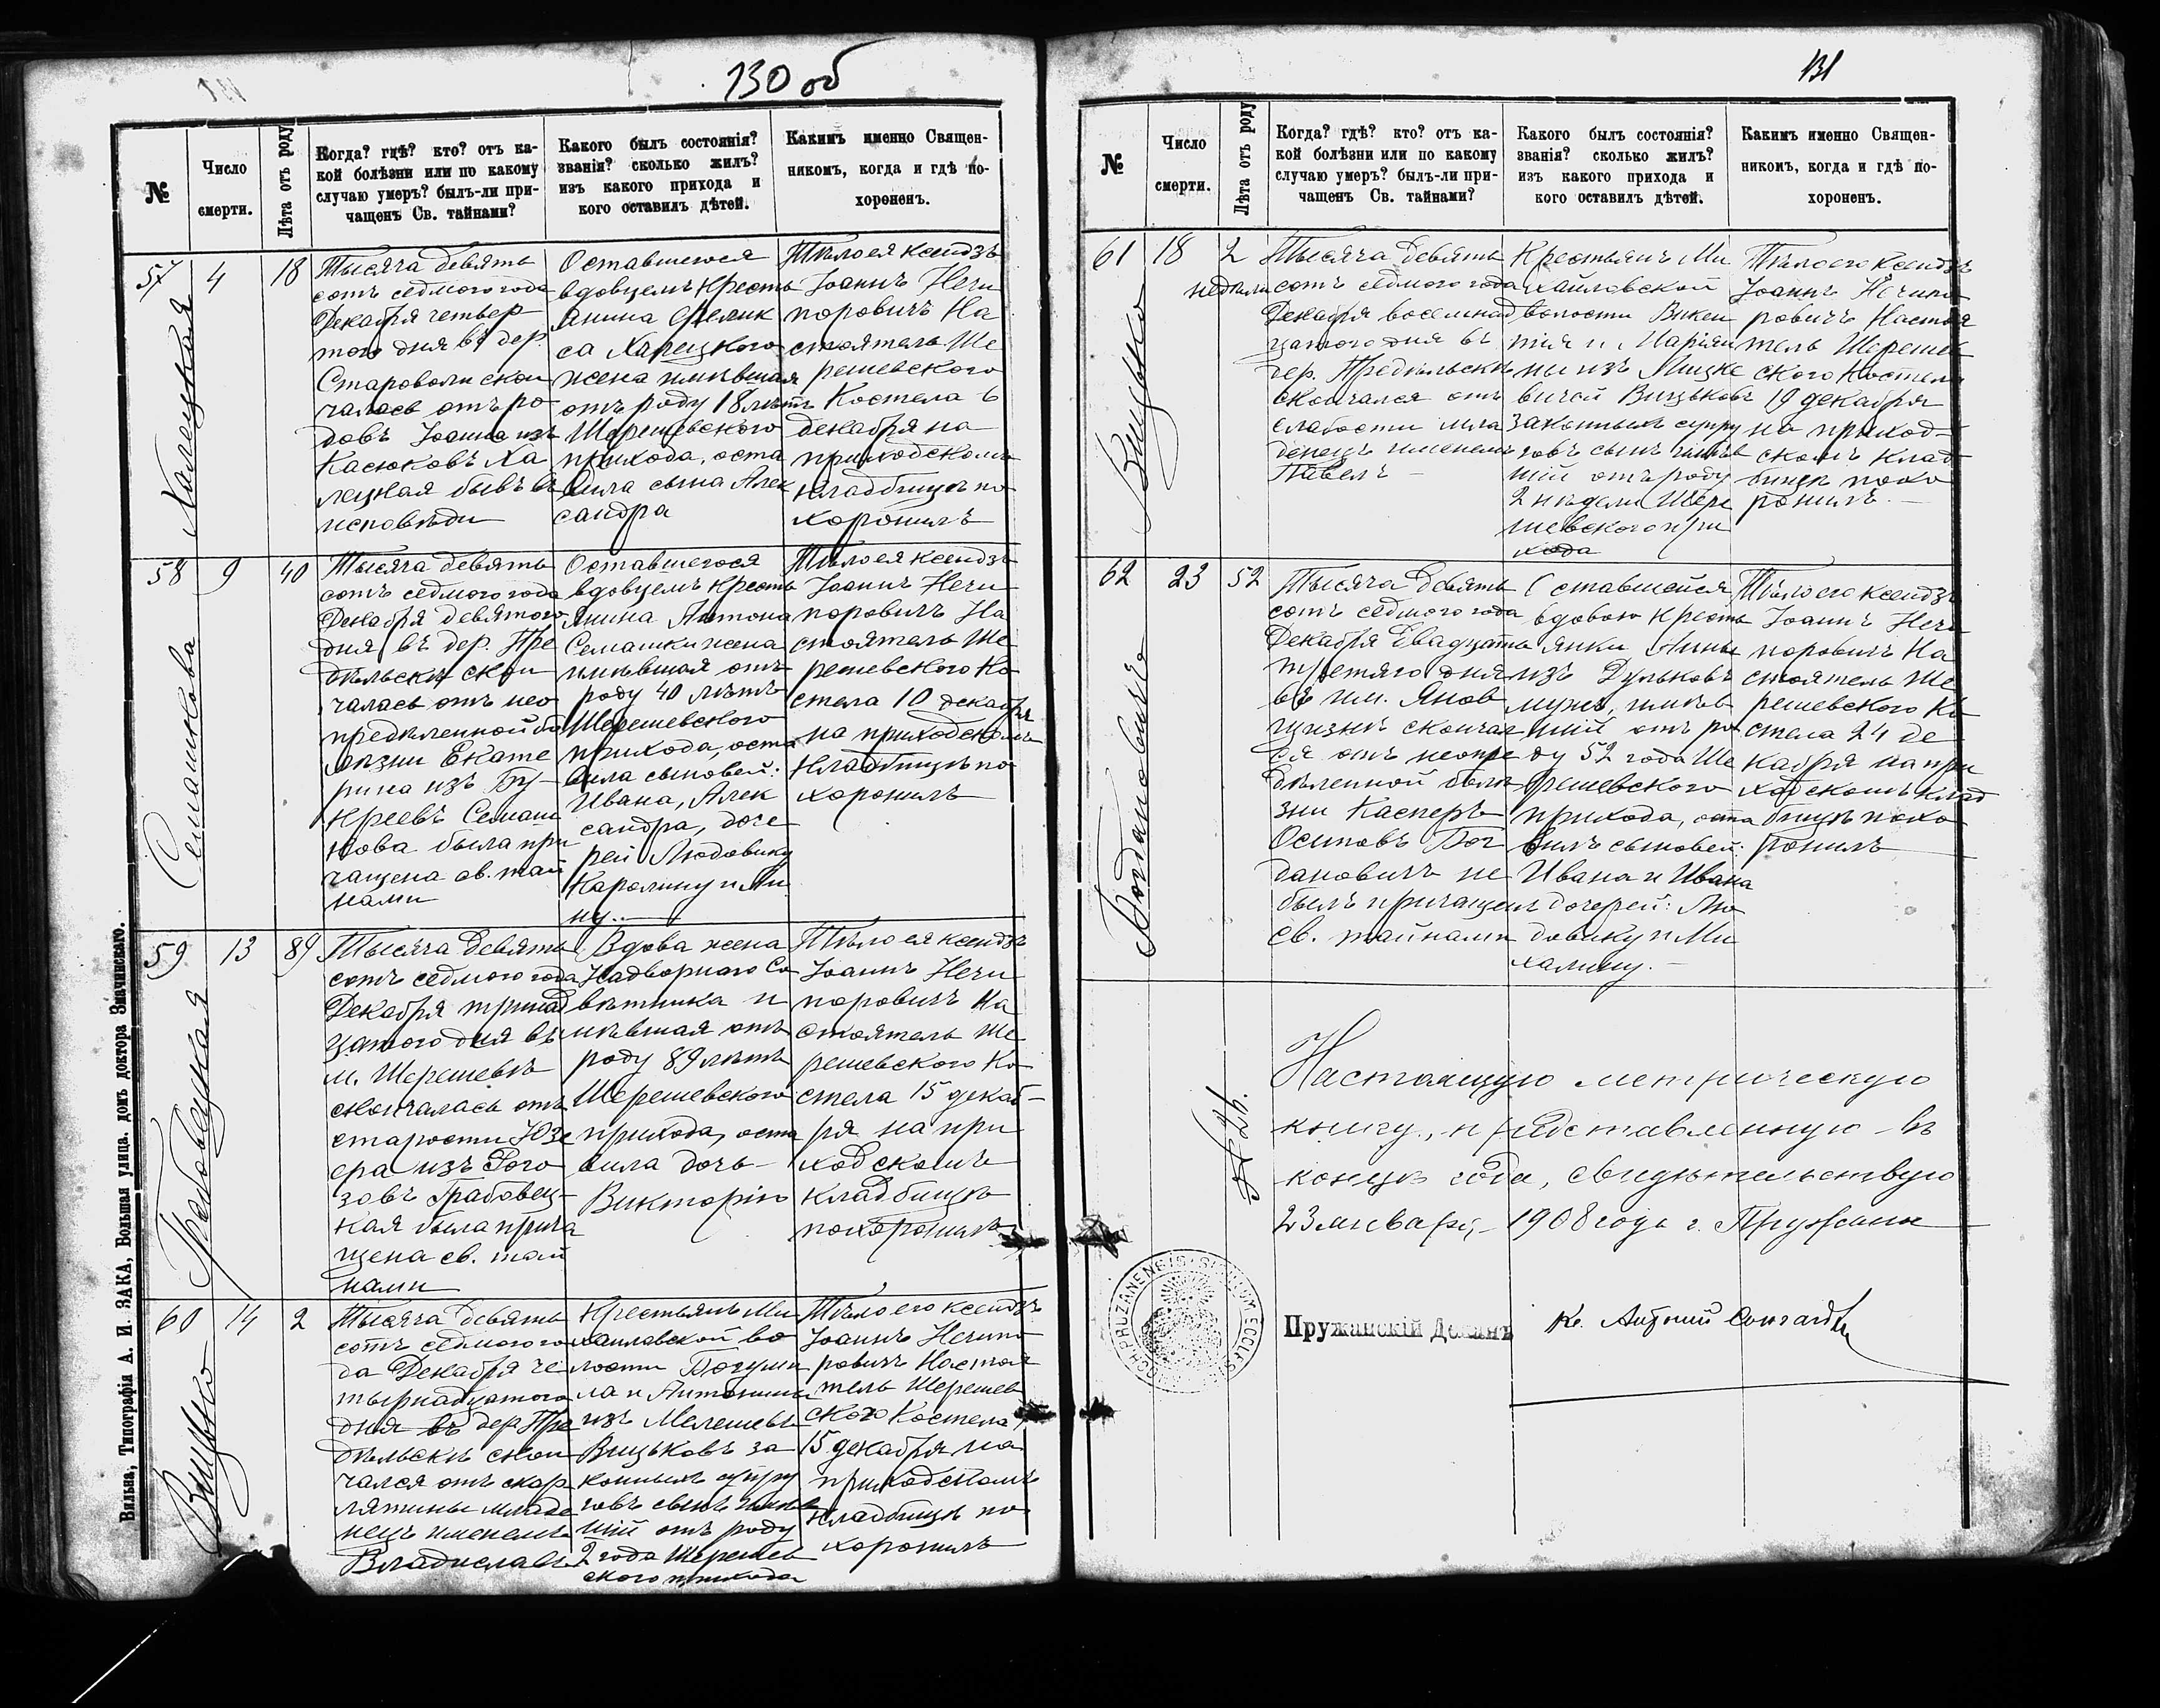 130 об
№
Число
смерти.
Лѣта отъ роду
Когда? гдѣ? кто? отъ ка-
кой болѣзни или по какому
случаю умеръ? былъ-ли при-
чащенъ Св. тайнами?
Какого былъ состоянія?
званія? сколько жилъ?
изъ какого прихода и
кого оставилъ дѣтей.
Какимъ именно Священ-
никомъ, когда и гдѣ по-
хороненъ.
57
Халецкая
4
18
Тысяча девять
сотъ седмого года
Декабря четвер
того дня въ дер.
Староволи скон
чалась отъ ро
довъ Іоанна изъ
Касюковъ Ха
лецкая бывъ въ
исповѣди
Оставшегося
вдовцемъ Кресть
янина Фелик
са Халецкого
жена имѣвшая
отъ роду 18 лѣтъ
Шерешевского
прихода, оста
вила сына Алек
сандра
Тѣло ея ксендзъ
Іоаннъ Нечи
поровичъ На
стоятель Ше
решевского
Костела 6
декабря на
приходскомъ
кладбищѣ по
хоронилъ
58
Семашкова
9
40
Тысяча девять
сотъ седмого года
Декабря девятого
дня въ дер. Пре
дѣльскъ скон
чалась отъ нео
предѣленной бо
лѣзни Екате
рина изъ Бу-
креевъ Семаш
кова была при
чащена св. тай
нами
Оставшегося
вдовцемъ Кресть
янина Антона
Семашки жена
имѣвшая отъ
роду 40 лѣтъ
Шерешевского
прихода, оста
вила сыновей:
Ивана, Алек
сандра, доче
рей Людовику
Каролину и Ни
ну.-
Тѣло ея ксендзъ
Іоаннъ Нечи
поровичъ На
стоятель Ше
решевского Ко
стела 10 декабря
на приходскомъ
кладбищѣ по
хоронилъ
59
Грабовецкая
13
89
Тысяча девять
сотъ седмого года
Декабря тринад
цатого дня въ
м. Шерешевѣ
скончалась отъ
старости Юзе
фа изъ Рого
зовъ Грабовец-
кая была прича
щена св. тай
нами
Вдова жена
Надворнаго Со
вѣтника и
мѣвшая отъ
роду 89 лѣтъ
Шерешевского
прихода, оста
вила дочь
Викторію
Тѣло ея ксендзъ
Іоаннъ Нечи
поровичъ На
стоятель Ше
решевского Ко
стела 15 декаб-
ря на при
ходскомъ
кладбищѣ
похоронилъ
60
Вицько
14
2
Тысяча девять
сотъ седмого го
да Декабря че
тырнадцатого
дня въ дер. Пре
дѣльскъ скон
чался отъ скар
лятины младе
нецъ именемъ
Владиславъ
Крестьянъ Ми
хайловской во
лости Богуми
ла и Антонины
изъ Мелешевъ
Вицьковъ за
конныхъ супру
говъ сынъ имѣв
шій отъ роду
2 года Шерешев
ского прихода
Тѣло его ксендзъ
Іоаннъ Нечипо
ровичъ Настоя
тель Шерешев
ского Костела
15 декабря на
приходскомъ
кладбищѣ по
хоронилъ
Вильна, Типографія А. И. ЗАКА, Большая улица. домъ доктора Змачинскаго.
131
№
Число
смерти.
Лѣта отъ роду
Когда? гдѣ? кто? отъ ка-
кой болѣзни или по какому
случаю умеръ? былъ-ли при-
чащенъ Св. тайнами?
Какого былъ состоянія?
званія? сколько жилъ?
изъ какого прихода и
кого оставилъ дѣтей.
Какимъ именно Священ-
никомъ, когда и гдѣ по-
хороненъ.
61
Вицько
18
2
недѣли
Тысяча девять
сотъ седмого года
Декабря восемнад
цатого дня въ
дер. Предѣльскъ
скончался отъ
слабости мла
денецъ именемъ
Павелъ -
Крестьянъ Ми
хайловской
волости Викен
тія и Маріан
ны изъ Лицке
вичей Вицьковъ
законныхъ супру
говъ сынъ имѣв
шій отъ роду
2 недели Шере
шевского при
хода
Тѣло его ксендзъ
Іоаннъ Нечипо
ровичъ Настоя
тель Шерешев
ского Костела
19 декабря
на приход-
скомъ клад
бищѣ похо
ронилъ -
62
Богдановичъ
23
52
Тысяча девять
сотъ седмого года
Декабря двадцать
третяго дня
въ им. Янов
щизнѣ скончал
ся отъ неопре
дѣленной болѣ
зни Касперъ
Осиповъ Бог
дановичъ не
былъ причащенъ
св. тайнами
Оставшейся
вдовою Кресть
янки Анны
изъ Дульковъ
мужъ, имѣв
шій отъ ро
ду 52 года Ше
решевского
прихода, оста
вилъ сыновей:
Ивана и Ивана
дочерей: Лю
довику и Ми
халину.-
Тѣло его ксендзъ
Іоаннъ Нечи
поровичъ На
стоятель Ше
решевского Ко
стела 24 де
кабря на при
ходскомъ клад
бищѣ похо
ронилъ
Настоящую метрическую
книгу, представленную въ
концѣ года, свидѣтельствую
23 января, 1908 года г. Пружаны
№ 26.
Пружанскій Деканъ
Кс. Антоній